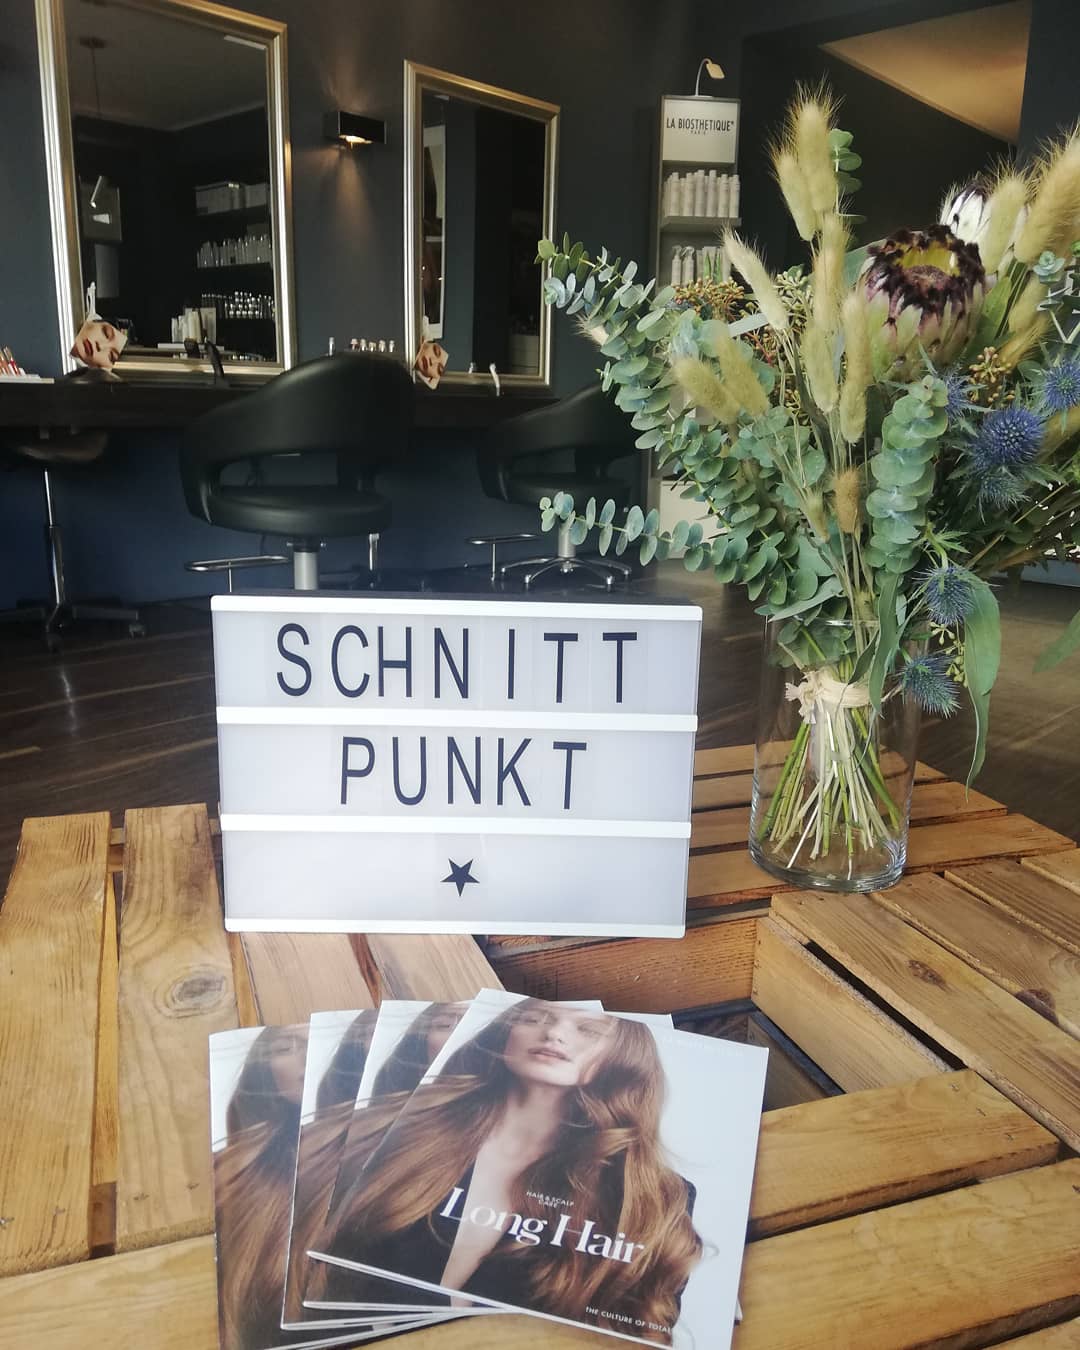 LA BIOSTHETIQUE®
PARIS
SCHNITT
PUNKT
HAIR & SCALP
CARE
Long Hair
THE CULTURE OF TOTAL